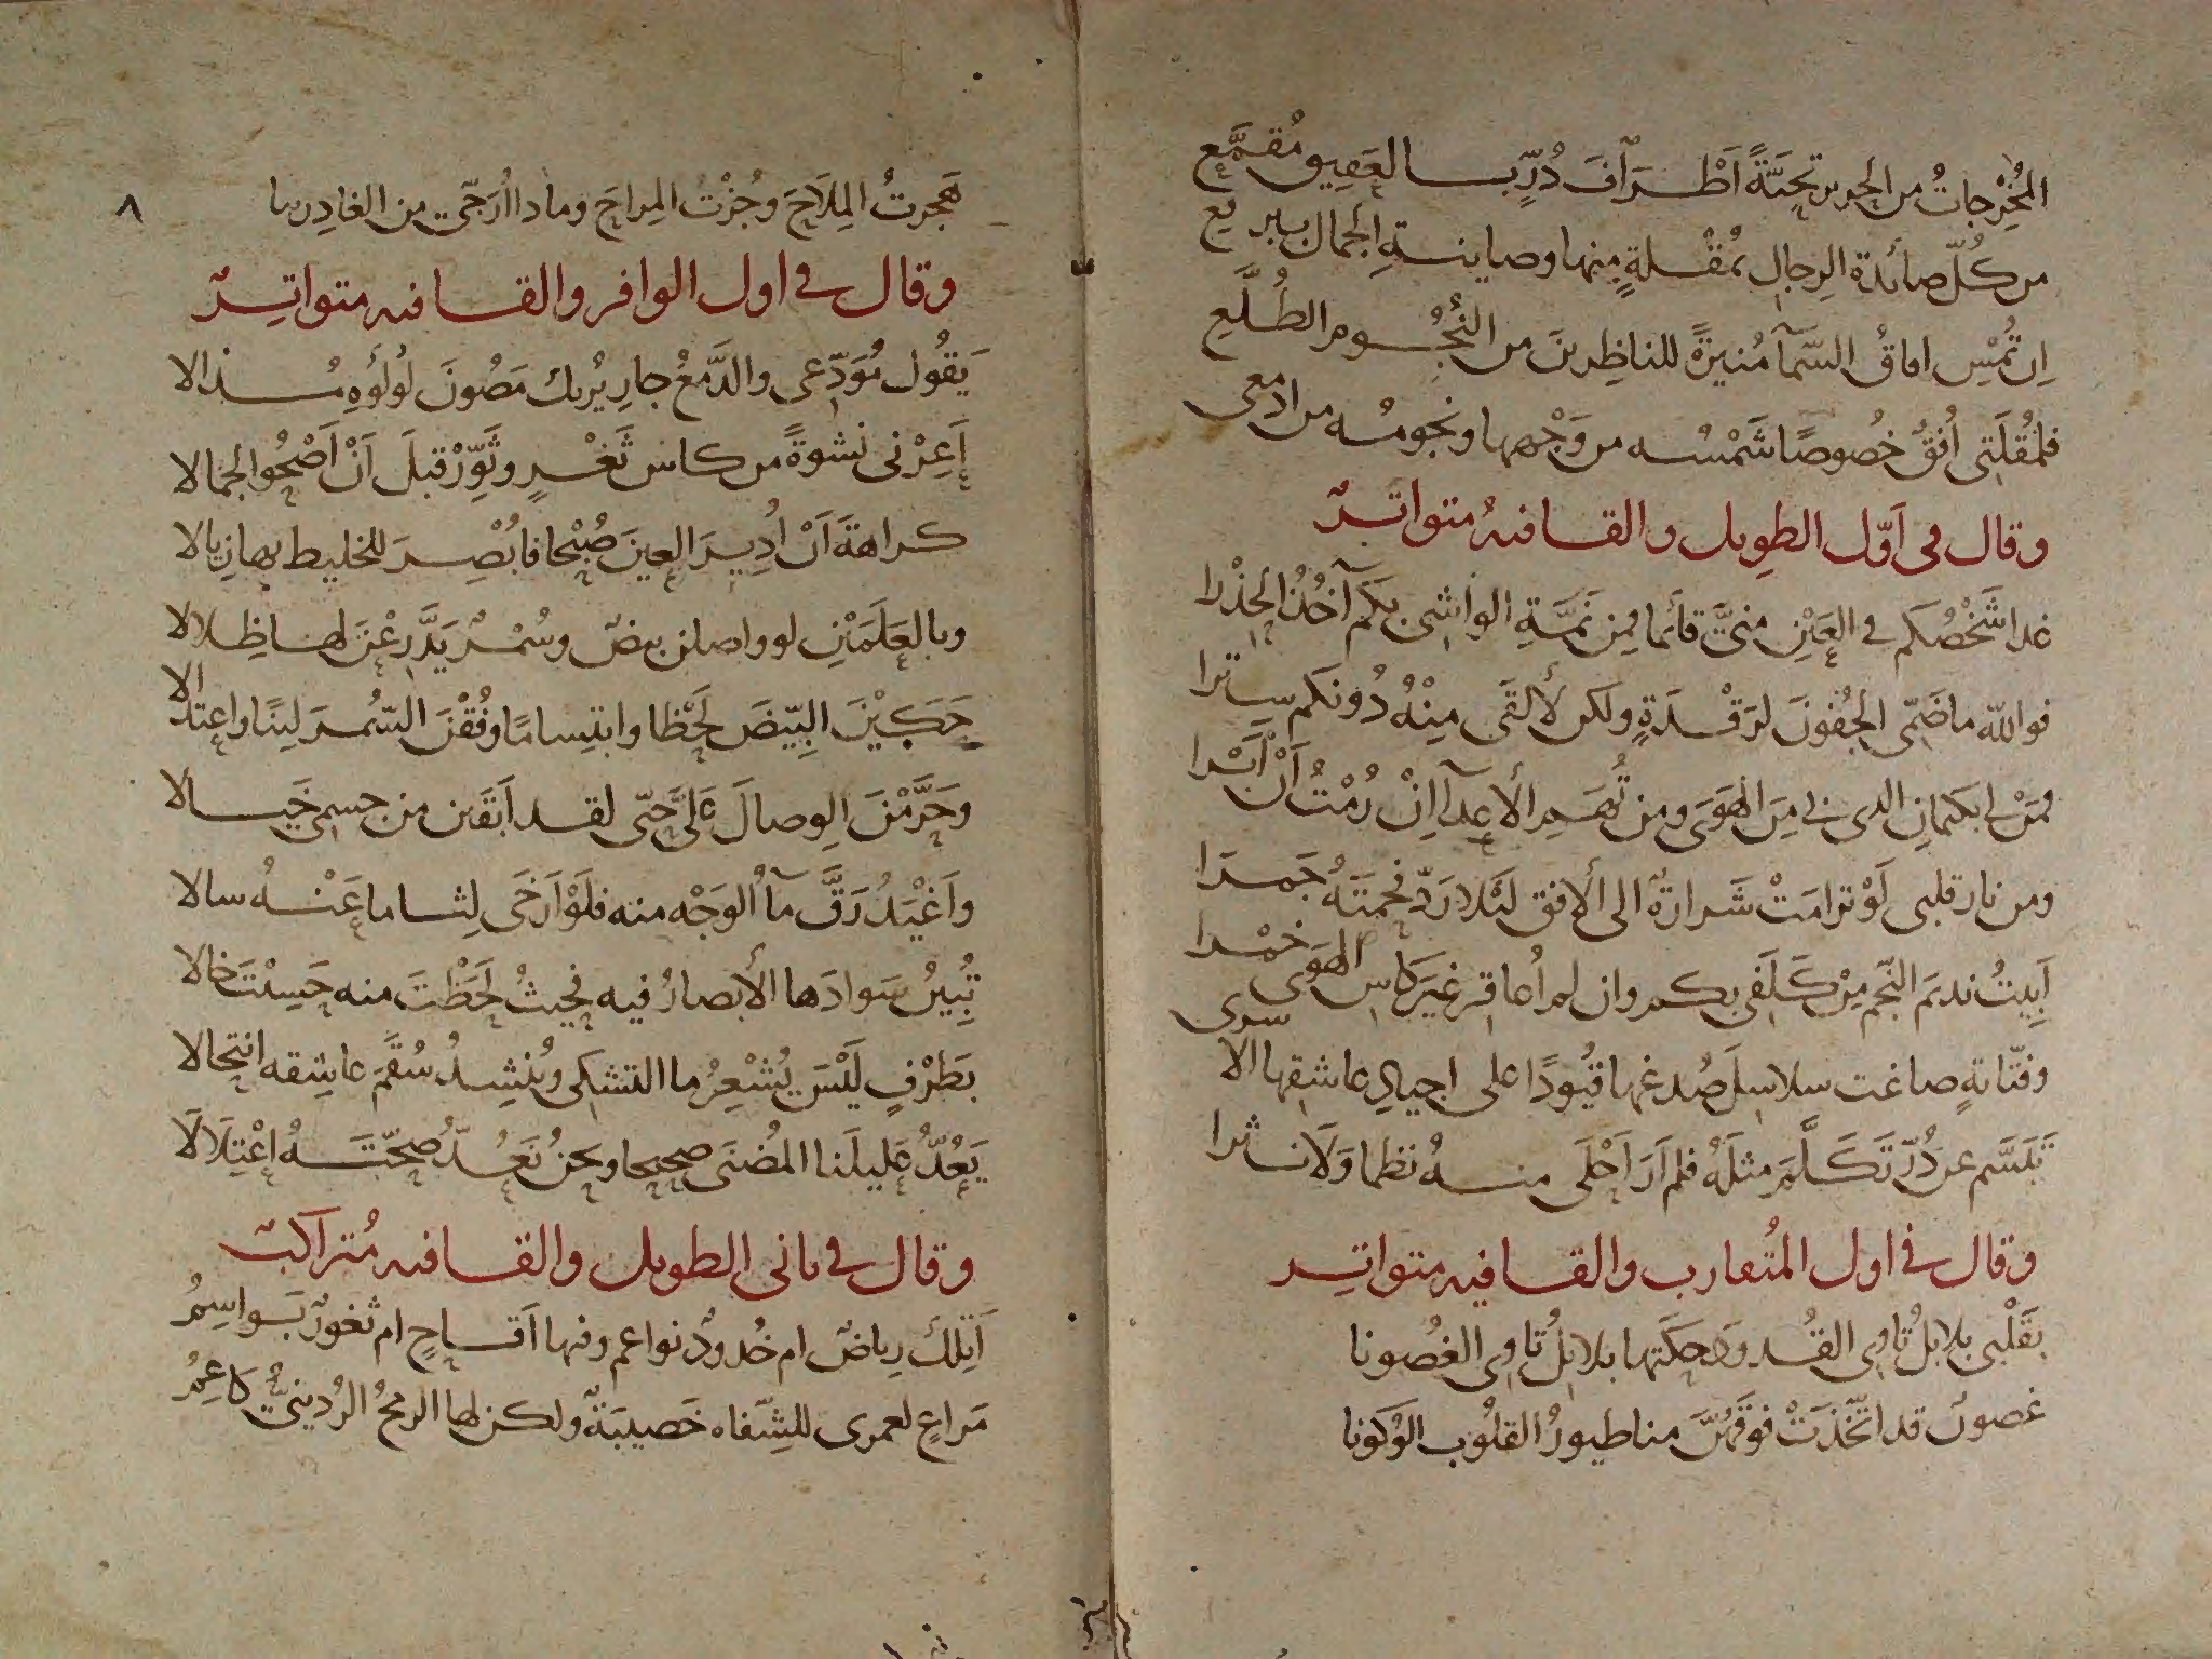 المُخْرِجاتُ من الحرير تحيَّةً اَطْرَافَ دُرٍّ بالعَقِيق مُقمَّع
من كلّ صائدة الرجال بمُقْلةٍ منها وصاينةِ الجمال ببرقع
اِن تُمْسِ افاقُ السّمآ مُنيرةً للناظرين من النُجُوم الطُلَّعِ
فلمُقلَتى اُفقٌ خُصُوصًا شَمْسُه من وَجْهها ونجومُه من ادمعى
وقال فى اَوّل الطويل والقافيهُ متواترٌ
غدا شَخْصُكم في العَيْن منيَّ قائما فمِن نَمَّةِ الواشى بكم آخُذُ الحِذْرا
فوالله ما ضَمّى الجُفونَ لرَقْدَةٍ ولكن لألقَى مِنْهُ دُونكم سِترا
فمَنْ لى بكتمانِ الذى بى مِنَ الهَوَى ومن تُهَمِ الأعدآ اِنْ رُمْتُ اَنْ اَبْرا
ومن نار قلبى لَوْ ترامَتْ شَرارةٌ الى الأفق لَيْلا رَدّ فحمتَهُ جَمرَا
اَبِيتُ نديمَ النّجم مِنْ كَلَفى بكم وان لم اُعاقر غيرَ كاس الهَوَى خمْرا
وفتّانةٍ صاغت سلاسلَ صُدغها قُيُودًا على اجيادِ عاشقها الاسرى
تَبَسَّم عن دُرّ تَكَلَّمَ مِثلَهُ فلم اَرَ اَحْلَى منهُ نظما وَلَا نثرا
وقال في اول المُتقارب والقافيه متواتر
بقَلْبى بلابلُ ثاوِى القُدودِ حكَتها بلابلُ ثاوِى الغُصونا
غصونٌ قد اتّخَذَتْ فوقَهُنَّ منا طيورُ القلُوب الوُكونا
٨
هَجرتُ المِلَاحَ وجُزْتُ المِراحَ وماذا اُرَجّى من الغادرينا
وقال في اول الوافر والقافيه متواترٌ
يَقُول مُوَدّعى والدَّمْعُ جارٍ يُريك مَصُونَ لُولُوهِ مُذالا
اَعِرْنى نَشوةً من كاس ثَغْرٍ وثَوِّرْ قبلَ اَنْ اَضْحُوا الجمالا
كراهةَ اَنْ اُدِيرَ العينَ صُبْحا فابُصِرَ للخليط بها زيالا
وبالعَلَمَيْنِ لو واصلن بيضٌ وسُمْرٌ يَدَّرِعْنَ لها ظِلالا
حَكَيْنَ البِيّضَ لَحْظا وابتساما وفُقْنَ السّمرَ لينًا واعتدالا
وحَرَّمْنَ الوِصالَ عَلَىَّ حَتّى لقد اَبقَين من جسمى خَيالا
واَغْيَدُ رَقَّ مآ اُلوَجْه منه فلَوْ اَرخَى لِثاما عَنْهُ سالا
تُبِينُ سَوادَها الأبصارُ فيه فحيثُ لَحَظْتَ منه حَسِبْتَ خالا
بَطَرْفٍ لَيْسَ يُشْعِرُ ما التشكى ويُنشِدُ سُقْمَ عاشقه انتحالا
يَعُدُّ عَليلَنا المُضنَى صحيحا ونحنُ نَعُدّ صِحّتَهُ اِعْتِلَالَا
وقال في ثانى الطويل والقافيه مُتراكبٌ
اَتِلكَ رياضٌ ام خُدودٌ نواعم وفيها اَقاحٍ ام ثغورٌ بَواسِمُ
مَراعٍ لعمرى للشِفاه خَصيبَةٌ ولكن لها الرمحُ الرُدينىُّ كاعِمُ